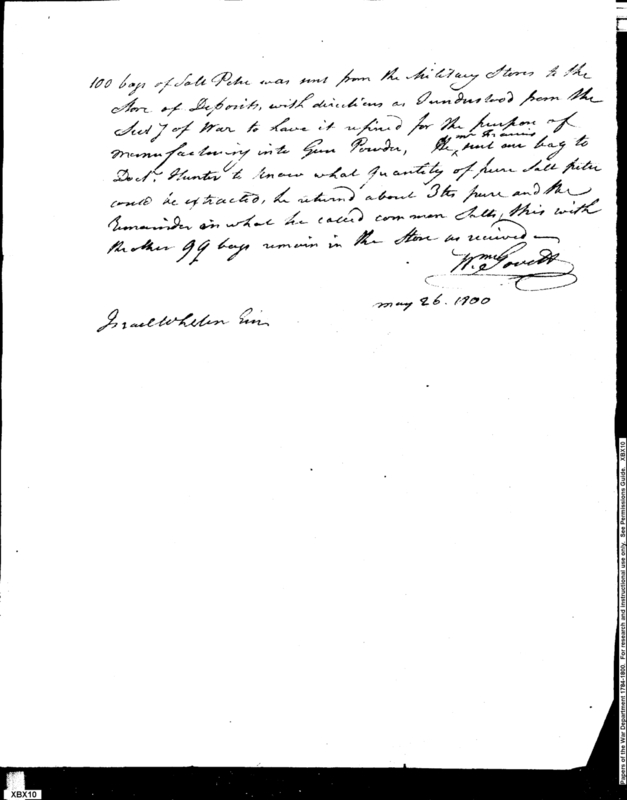 100 bags of Salt Petre was sent from the Military Stores to the
Store of Deposits, with directions as I understood from the
Secy of War to have it refined for the purpose of
manufacturing into Gun Powder, mr Francis sent one bag to
Doct. Hunter to know what quantity of pure Salt petre
could be extracted, he returned about pure and the
Remainder in what he called common Salts, this with
the other 99 bags remain in the Store as recieved
Wm Govett
may 26. 1800
Israel Whelen
XBX10
Papers of the War Department 1784-1800. For research and instructional use only. See Permissions Guide. XBX10